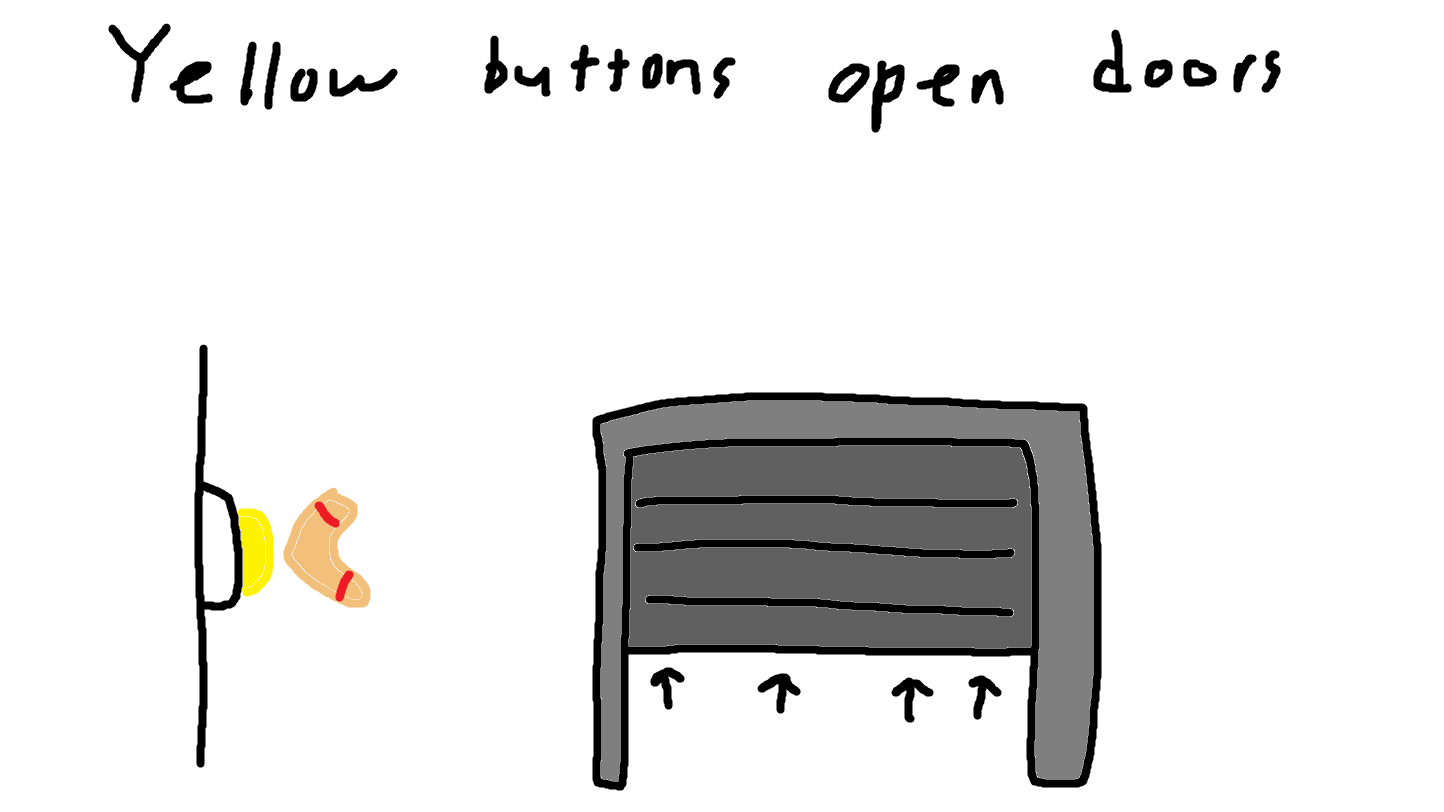 Yellow buttons open doors